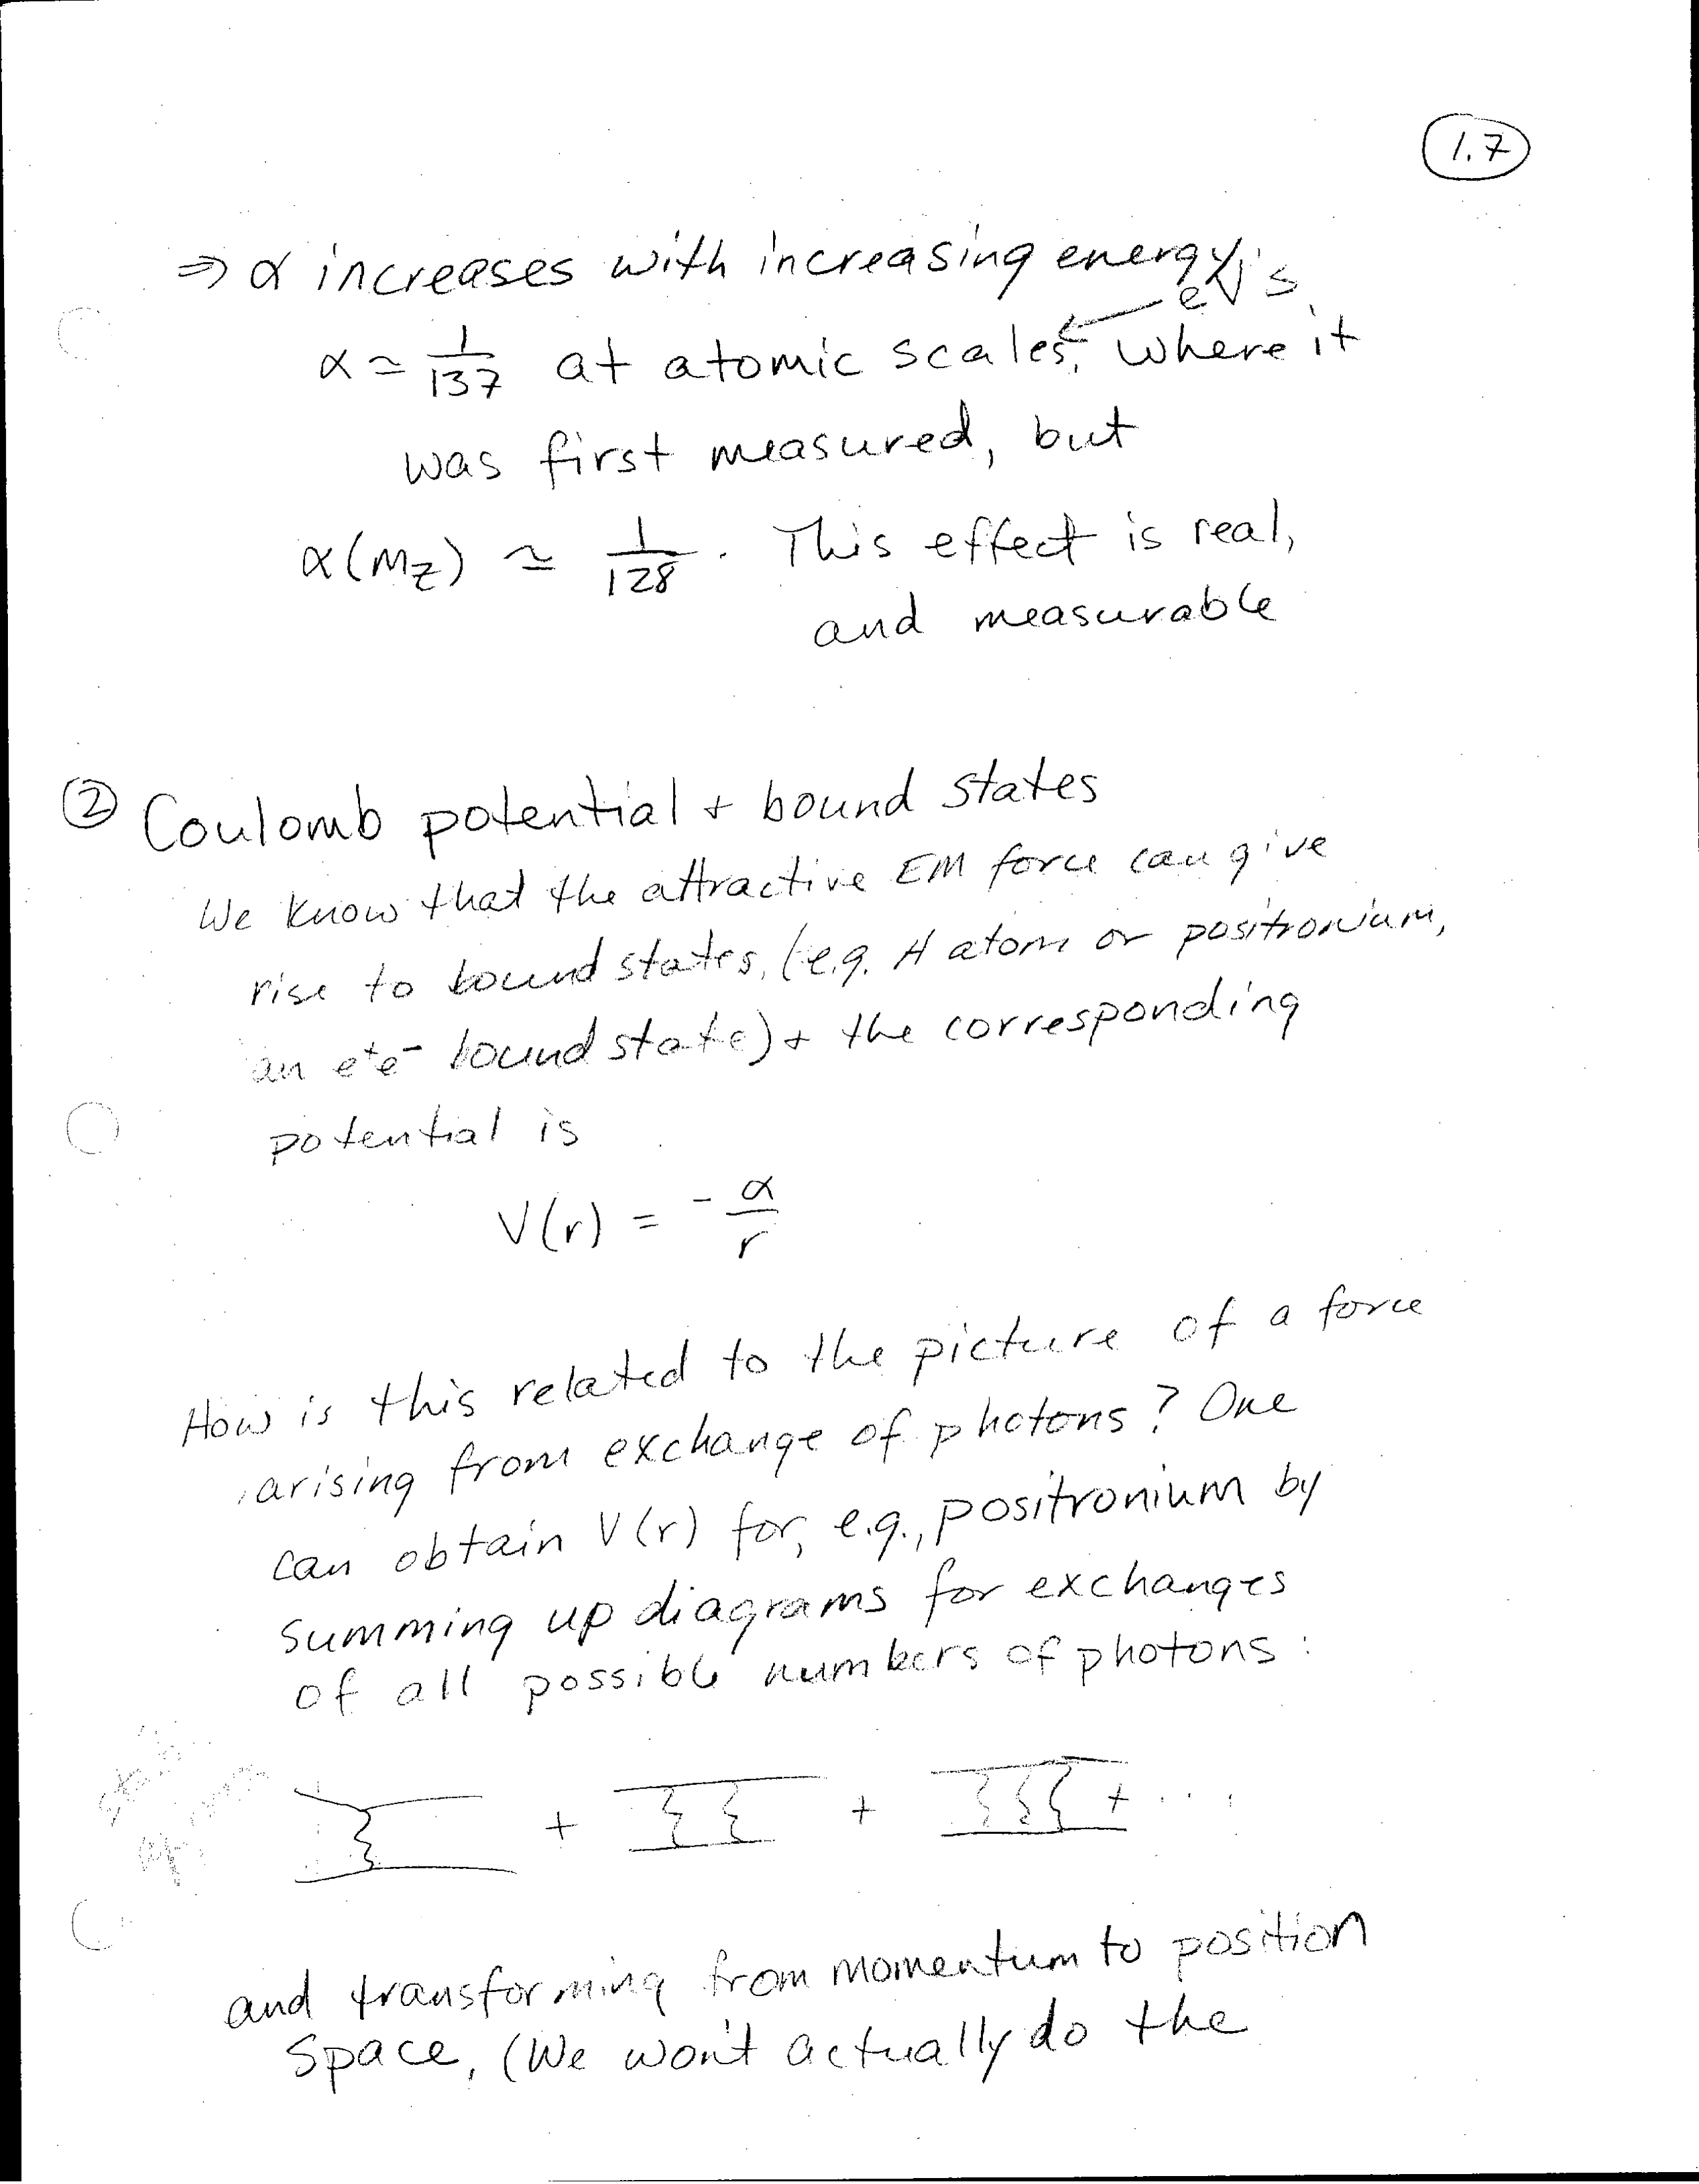 1.7
⇒ α increases with increasing energy
eV's
α ≃ 1/137 at atomic scales, where it
was first measured, but
α(M_Z) ≃ 1/128 . This effect is real,
and measurable
② Coulomb potential + bound states
We know that the attractive EM force can give
rise to bound states, (e.g. H atom or positronium,
an e⁺e⁻ bound state) + the corresponding
potential is
V(r) = - α/r
How is this related to the picture of a force
arising from exchange of photons? One
can obtain V(r) for, e.g., positronium by
summing up diagrams for exchanges
of all possible numbers of photons :
+ + + ...
and transforming from momentum to position
space, (We won't actually do the